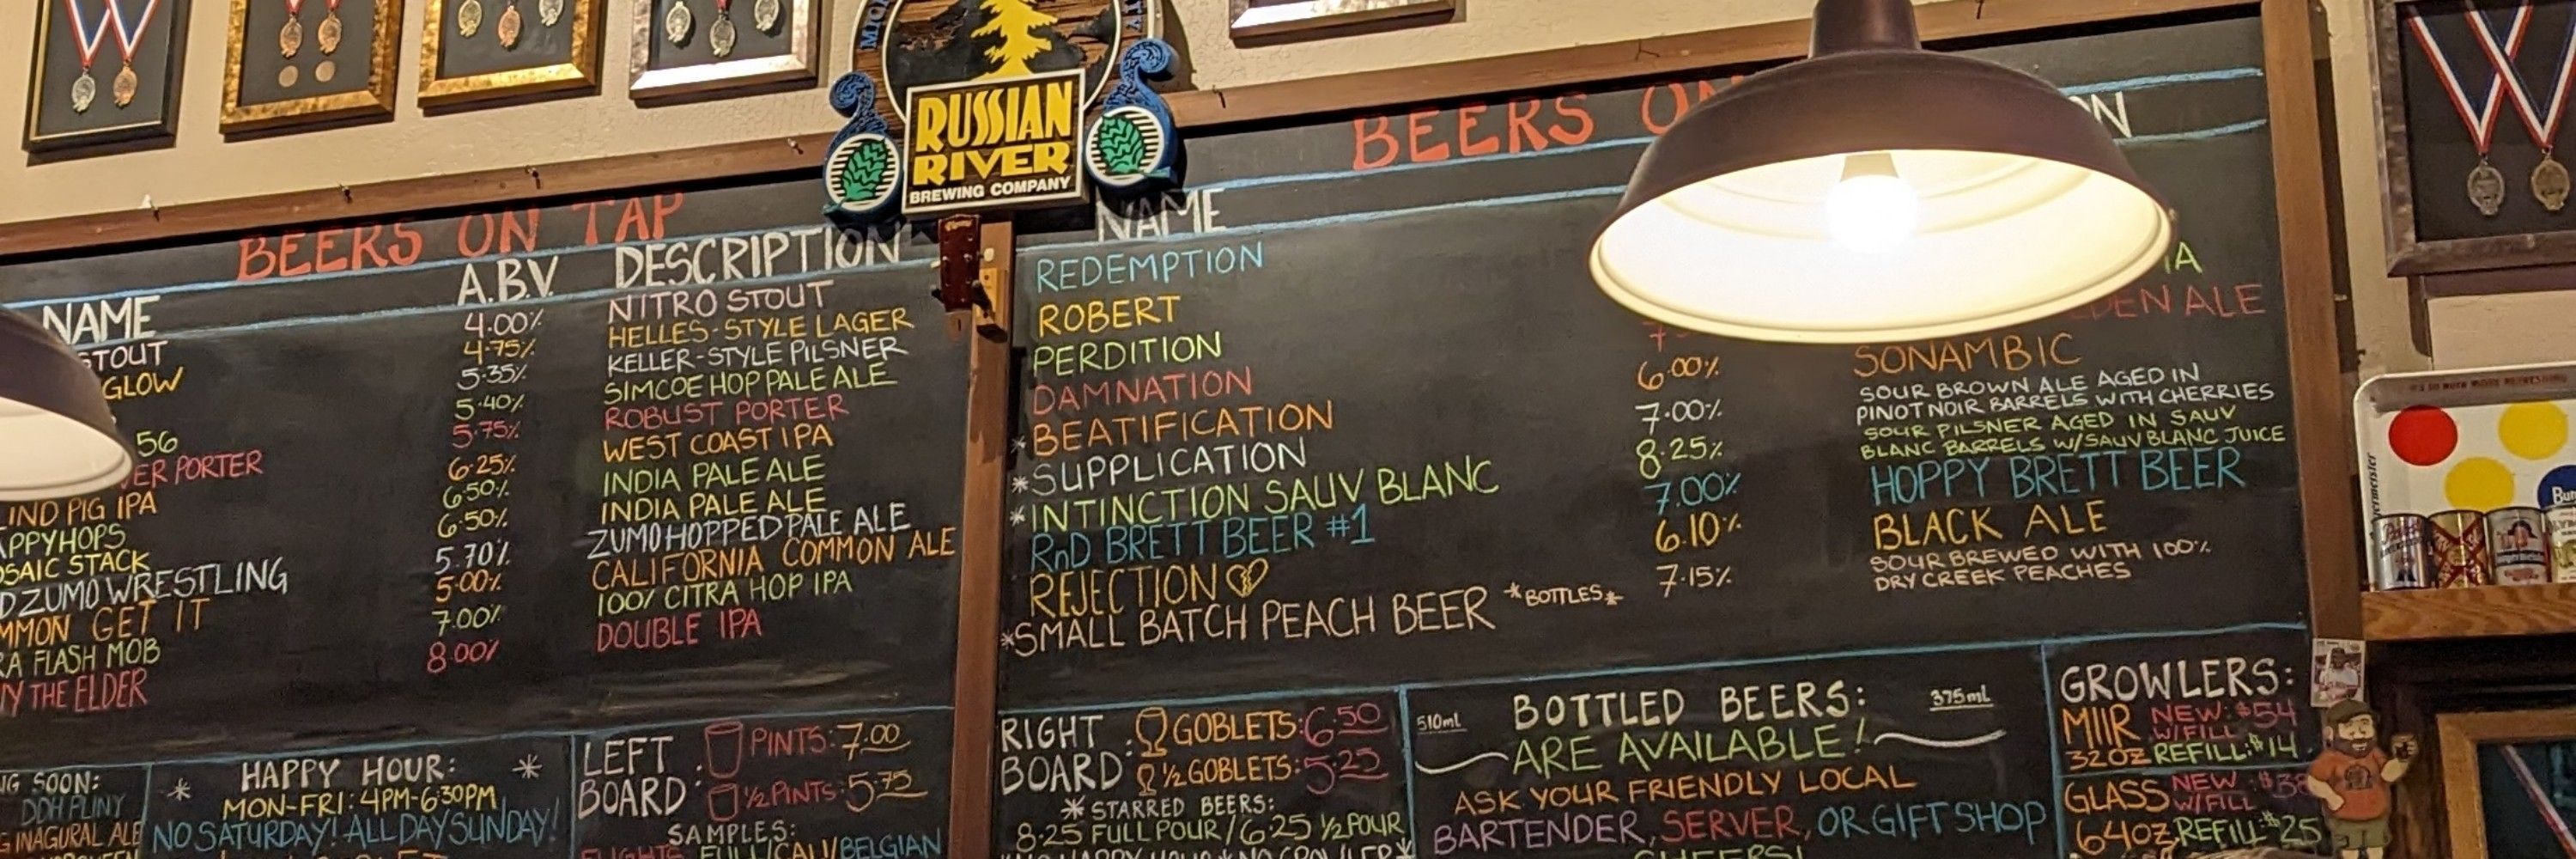 RUSSIAN
RIVER
BREWING COMPANY
BEERS ON TAP
NAME A.B.V. DESCRIPTION
STOUT 4.00% NITRO STOUT
GLOW 4.75% HELLES-STYLE LAGER
5.35% KELLER-STYLE PILSNER
56 5.40% SIMCOE HOP PALE ALE
ER PORTER 5.75% ROBUST PORTER
IND PIG IPA 6.25% WEST COAST IPA
APPY HOPS 6.50% INDIA PALE ALE
OSAIC STACK 6.50% INDIA PALE ALE
D ZUMO WRESTLING 5.70% ZUMO HOPPED PALE ALE
MMON GET IT 5.00% CALIFORNIA COMMON ALE
RA FLASH MOB 7.00% 100% CITRA HOP IPA
NY THE ELDER 8.00% DOUBLE IPA
NG SOON:
DDH PLINY
G INAGURAL ALE
* HAPPY HOUR: *
MON-FRI: 4PM-6:30PM
NO SATURDAY! ALL DAY SUNDAY!
LEFT BOARD:
PINTS: 7.00
1/2 PINTS: 5.75
SAMPLES:
FLIGHTS FULL/CALI/BELGIAN
BEERS ON
NAME
REDEMPTION
ROBERT
PERDITION
DAMNATION
*BEATIFICATION
*SUPPLICATION
*INTINCTION SAUV BLANC
RnD BRETT BEER #1
REJECTION
*SMALL BATCH PEACH BEER *BOTTLES*
6.00%
7.00%
8.25%
7.00%
6.10%
7.15%
DEN ALE
SONAMBIC
SOUR BROWN ALE AGED IN
PINOT NOIR BARRELS WITH CHERRIES
SOUR PILSNER AGED IN SAUV
BLANC BARRELS W/SAUV BLANC JUICE
HOPPY BRETT BEER
BLACK ALE
SOUR BREWED WITH 100%
DRY CREEK PEACHES
RIGHT BOARD:
GOBLETS: 6.50
1/2 GOBLETS: 5.25
* STARRED BEERS:
8.25 FULL POUR/6.25 1/2 POUR
*NO HAPPY HOUR*NO GROWLER*
510mL BOTTLED BEERS: 375mL
ARE AVAILABLE!
ASK YOUR FRIENDLY LOCAL
BARTENDER, SERVER, OR GIFT SHOP
CHEERS!
GROWLERS:
MIIR NEW: $54
W/FILL
32OZ REFILL: $14
GLASS NEW: $38
W/FILL
64OZ REFILL: $25